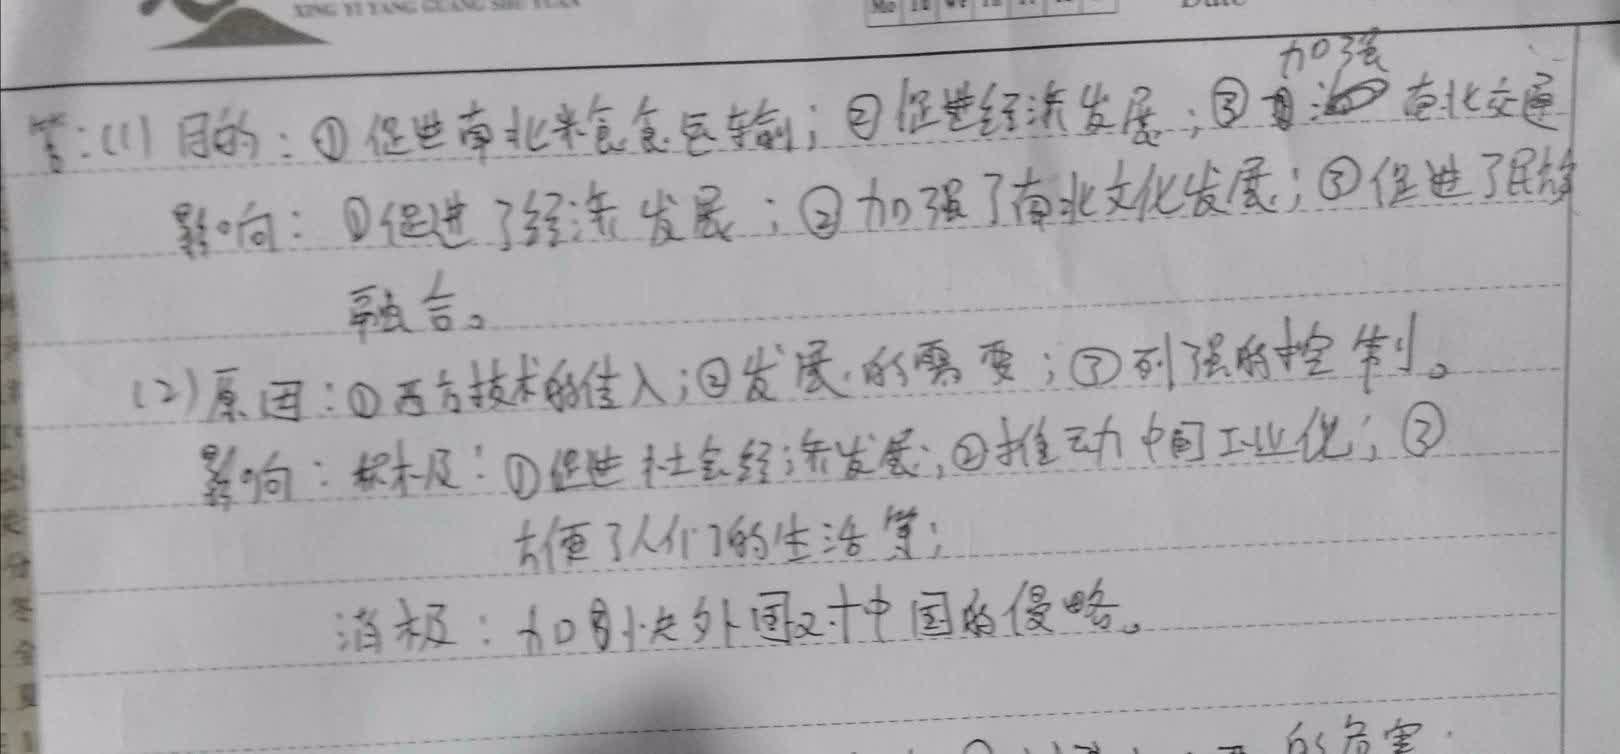 XING YI YANG GUANG SHU YUAN
Mo Tu We Th Fr
Date
答:(1)目的:①促进南北粮食运输;②促进经济发展;③加强南北交通
影响:①促进了经济发展;②加强了南北文化发展;③促进了民族
融合。
(2)原因:①西方技术的传入;②发展的需要;③列强的控制。
影响:积极:①促进社会经济发展;②推动中国工业化;③
方便了人们的生活等;
消极:加快外国对中国的侵略。
的危害